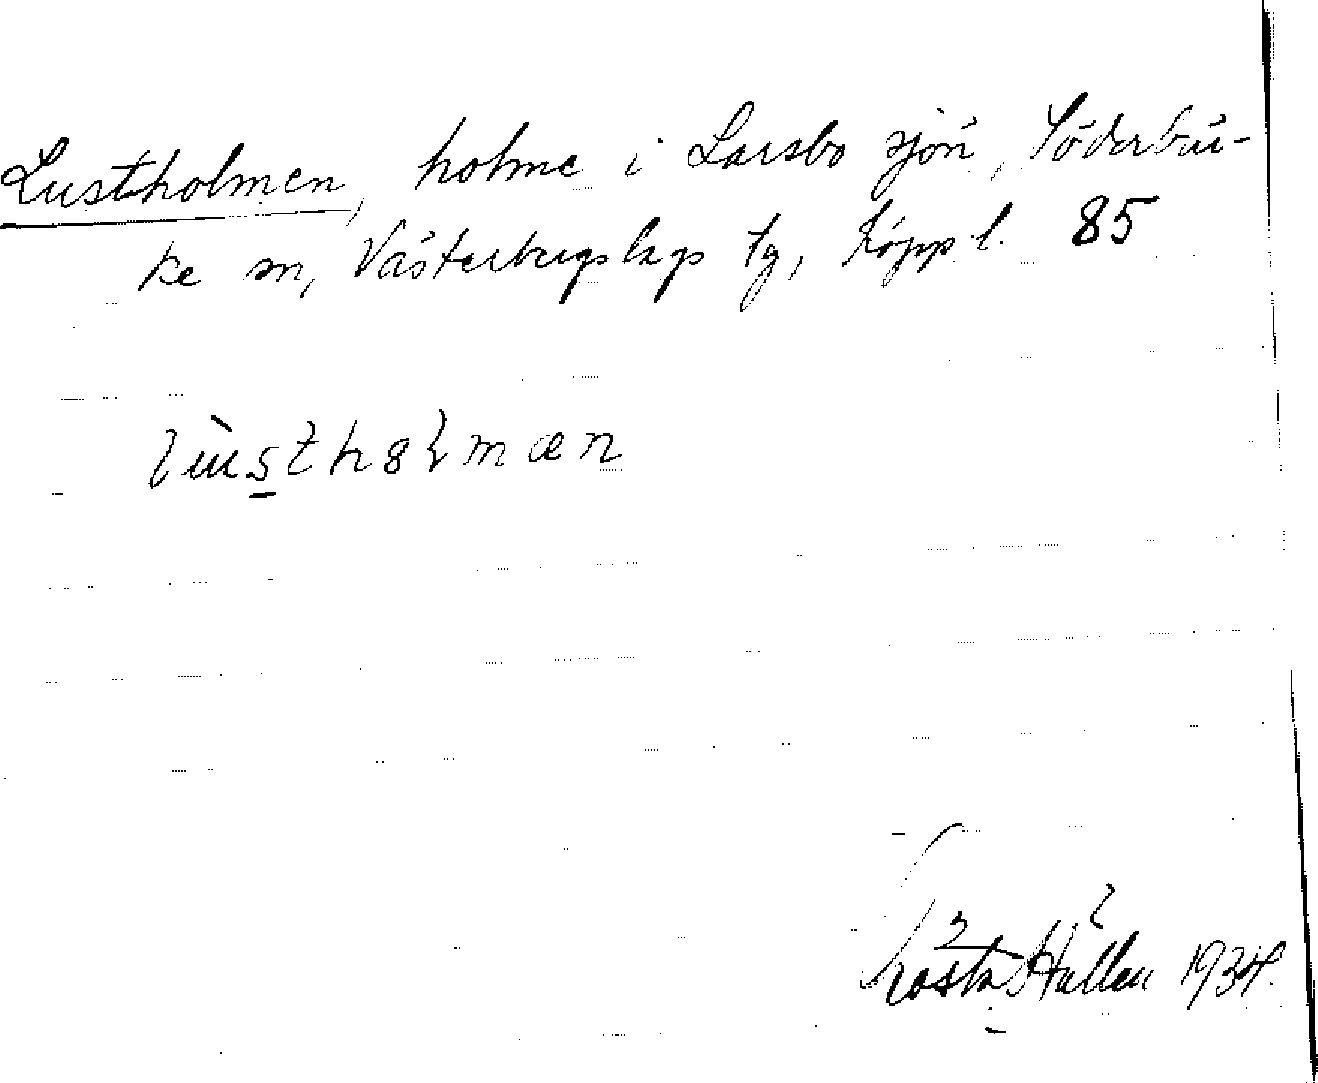 Lustholmen, holme i Larsbo sjön, Söderbär-
ke sn, Västerbergslags tg, Koppl. 85
lùstholmæn
Gösta Hallen 1934.